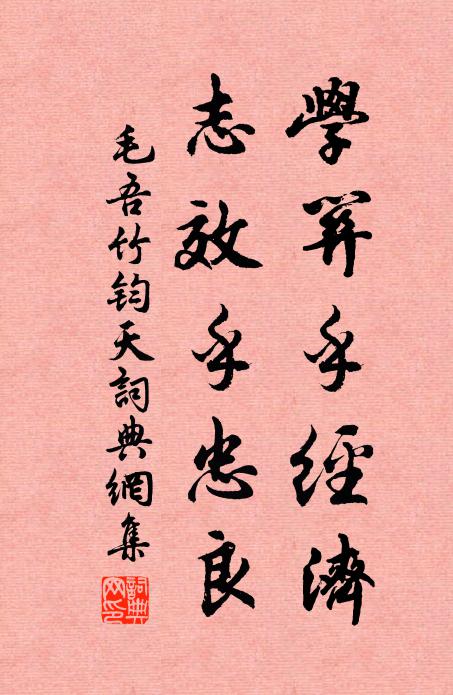 學開乎經濟
志效乎忠良
毛吾竹鈞天詞典網集
詞典网印